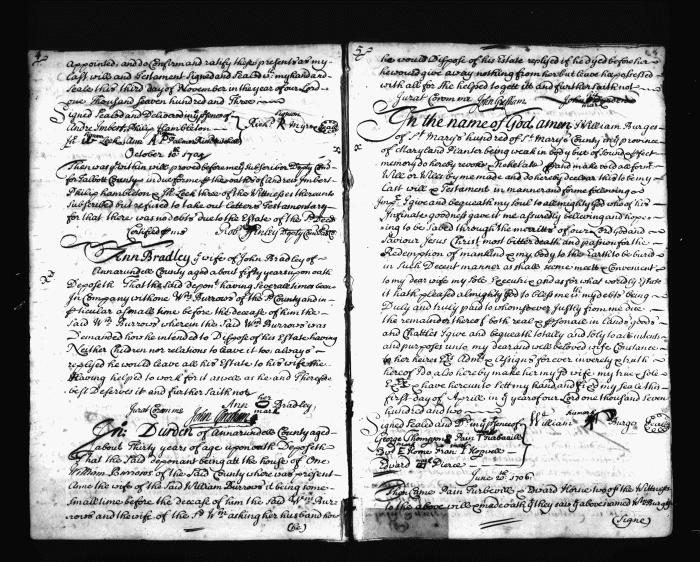 appointed, and do Confirm and ratify these presents as my
last will and Testament Signed and Sealed wth my hand and
Seale this third day of November in the year of our Lord
one thousand Seaven hundred and Three
Signed Sealed and Delivered in ye psence of
Andre Imbert, Philip Hambleton
Richd R Myrre
October 10th 1704
Then was ye within will proved before me ye Subscriber Depty Comy
for Talbott County in due forme ye oaths of Andrew Imbert
Philip hambleton & Leek three of the Wittneses thereunto
Subscribed but refused to take out Letters Testamentary
for that there was no debts due to the Estate of the Sd
Certified p me Robt Finley Depty
Ann Bradley ye wife of John Bradley of
Annarundell County aged about fifty years upon oath
Deposeth That the Said depont having Severall times been
In Company with one Wm Burrows of the Sd County and in
pticular a small time before the decease of him the
Said Wm Burrows wherein the Said Wm Burrows was
Demanded how he intended to Dispose of his Estate having
Neither Children nor relations to leave it too, always
replyed he would leave all his Estate to his wife She
Having helped to work for it as well as he and Therefore
best Deserves it and further saith not
Ann her mark Bradley
Jurat Coram me
John Gresham
Jn: Durden of Annarundell County aged
about Thirty years of age upon oath Deposeth
That the Said deponant being att the house of One
William Burrows of the Said County where was present
Ame the wife of the Said William Burrows it being some
Small time before the decease of him the Said Wm Bur
rows and the wife of the Sd Wm asking her husband how
(he)
he would Dispose of his Estate replyed if he dyed before her
he would give away nothing from her but leave her possessed
with all for She helped to gett itt and further saith not
Jurat Coram me John Gresham John Durden mark
In the name of God, amen. I William Burges
of St Mary's hundred of St Mary's County in ye province
of Maryland Planter being weak in body but of Sound & pfect
memory do hereby revoke & make void all form
Will or Wills by me made and do hereby declare this to be my
Last will & Testament in manner and forme following
Impr I give and bequeath my Soul to allmighty God who of his
Infinate goodness gave it me assuredly believing and hope
ing to be Saved through the meritts of our Lord God and
Saviour Jesus Christ most bitter death and passion for the
Redemption of mankind & my body to the Earth to be buried
in Such Decent manner as shall seeme meet & Convenient
to my dear wife my Sole Executrix and as for what worldly Estate
it hath pleased almighty God to bless me wth my debts being
Duly and truly paid to whomsoever Justly from me due
the remainder thereof both reall & psonall in lands goods
and Chattles I give and bequeath totally and Soly to all intents
and purposes unto my dear and well beloved wife Constance
to her heires Exrs Admrs & Assigns for ever in verety & truth
hereof I do also hereby make her my Sd wife my true Sole
Exx & have hereunto sett my hand and fixed my Seale this
first day of Aprill in ye year of our Lord one thousand seven
hundred and two
Signed Sealed and Dd in ye psence of
William Burges
George Thompson Pain Turbavile
Edward Horne Fran: Hopwell
Edward Pierce
June 20th 1706
Then Came Pain Turbevile & Edward Horne two of the Wittneses
to the above will & made oath yt they saw ye above named Wm Burgess
(Signe)